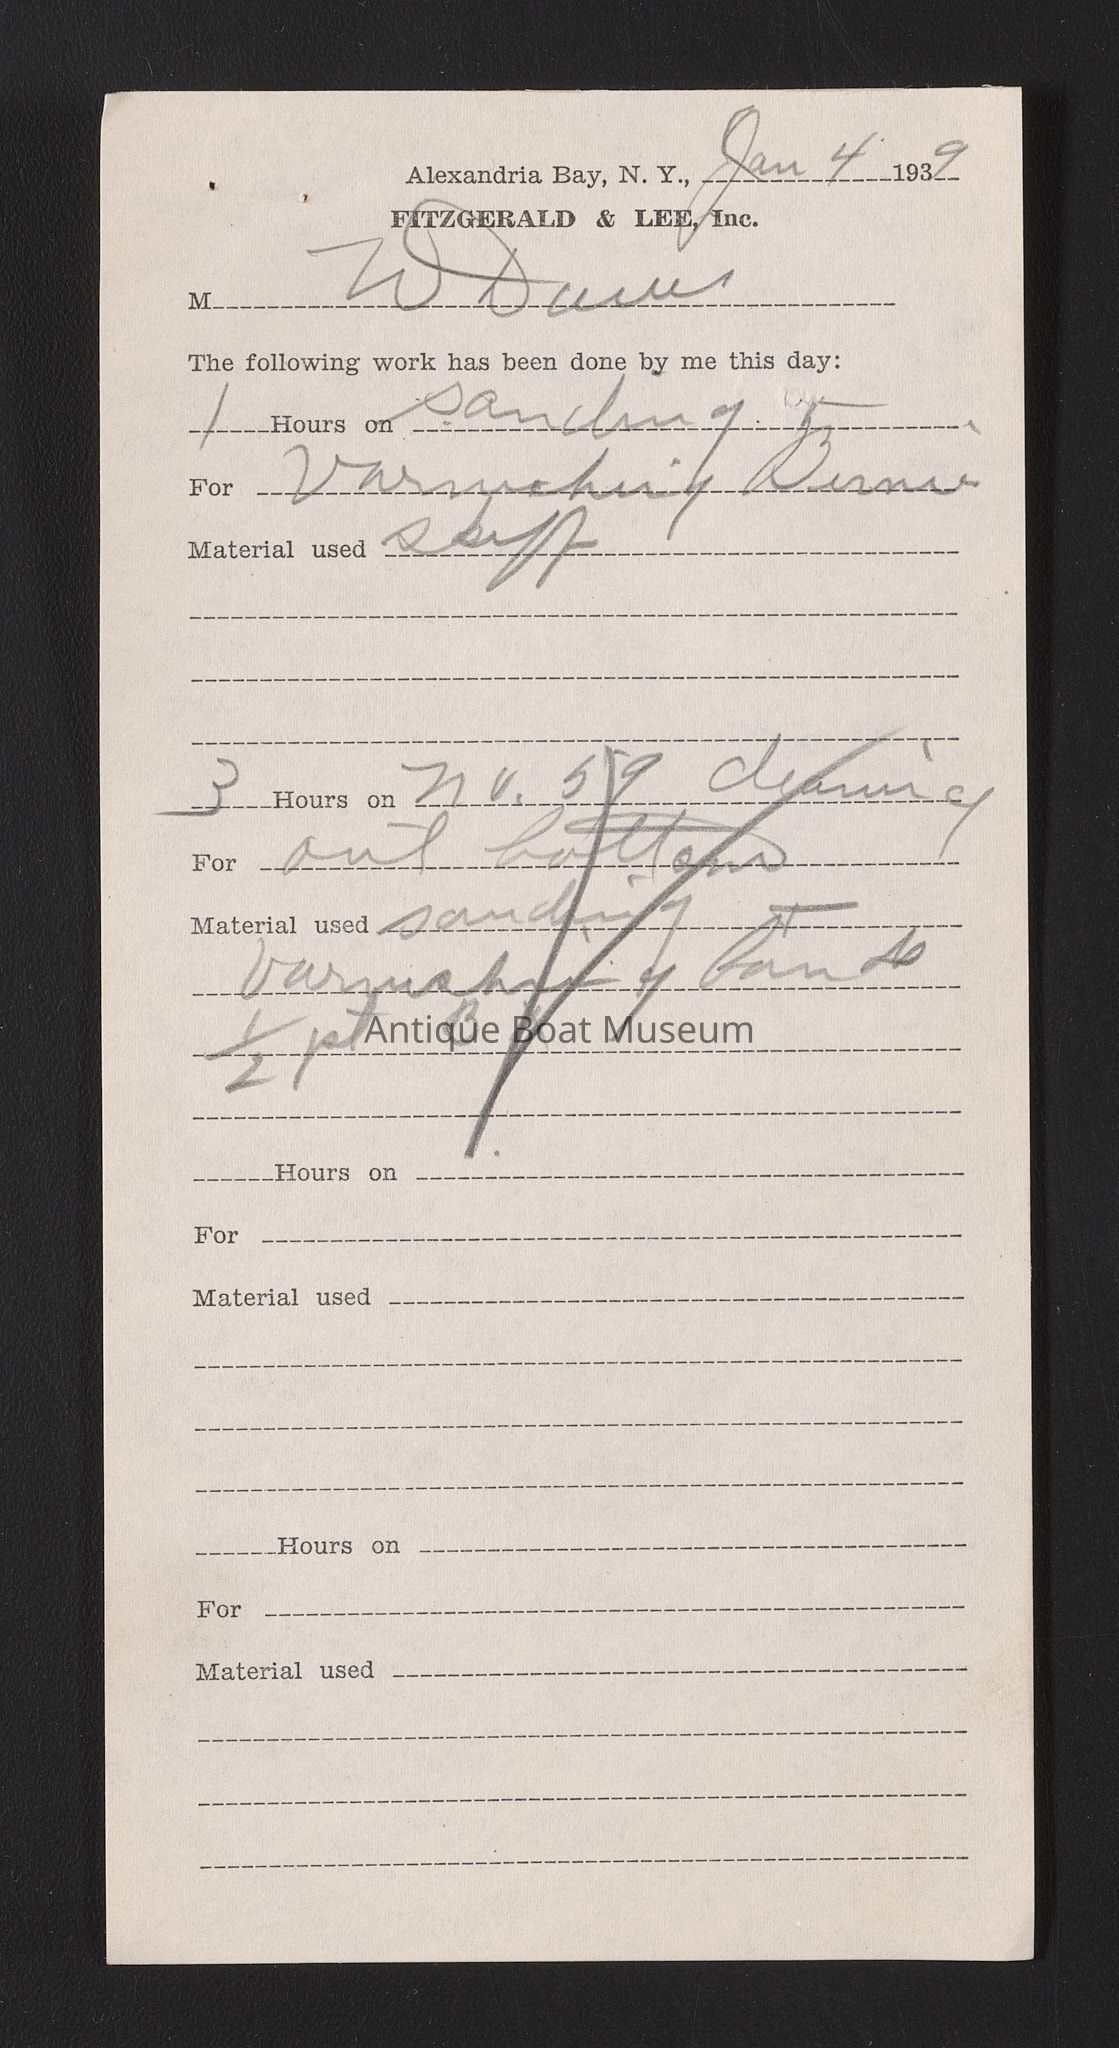 Alexandria Bay, N. Y., Jan 4 1939
FITZGERALD & LEE, Inc.
M W Davis
The following work has been done by me this day:
1 Hours on sanding &
For Varnishing Bernie
Material used skiff
3 Hours on No. 59 cleaning
For out bottom
Material used sanding &
Varnishing
1/2 pt
Antique Boat Museum
Hours on
For
Material used
Hours on
For
Material used